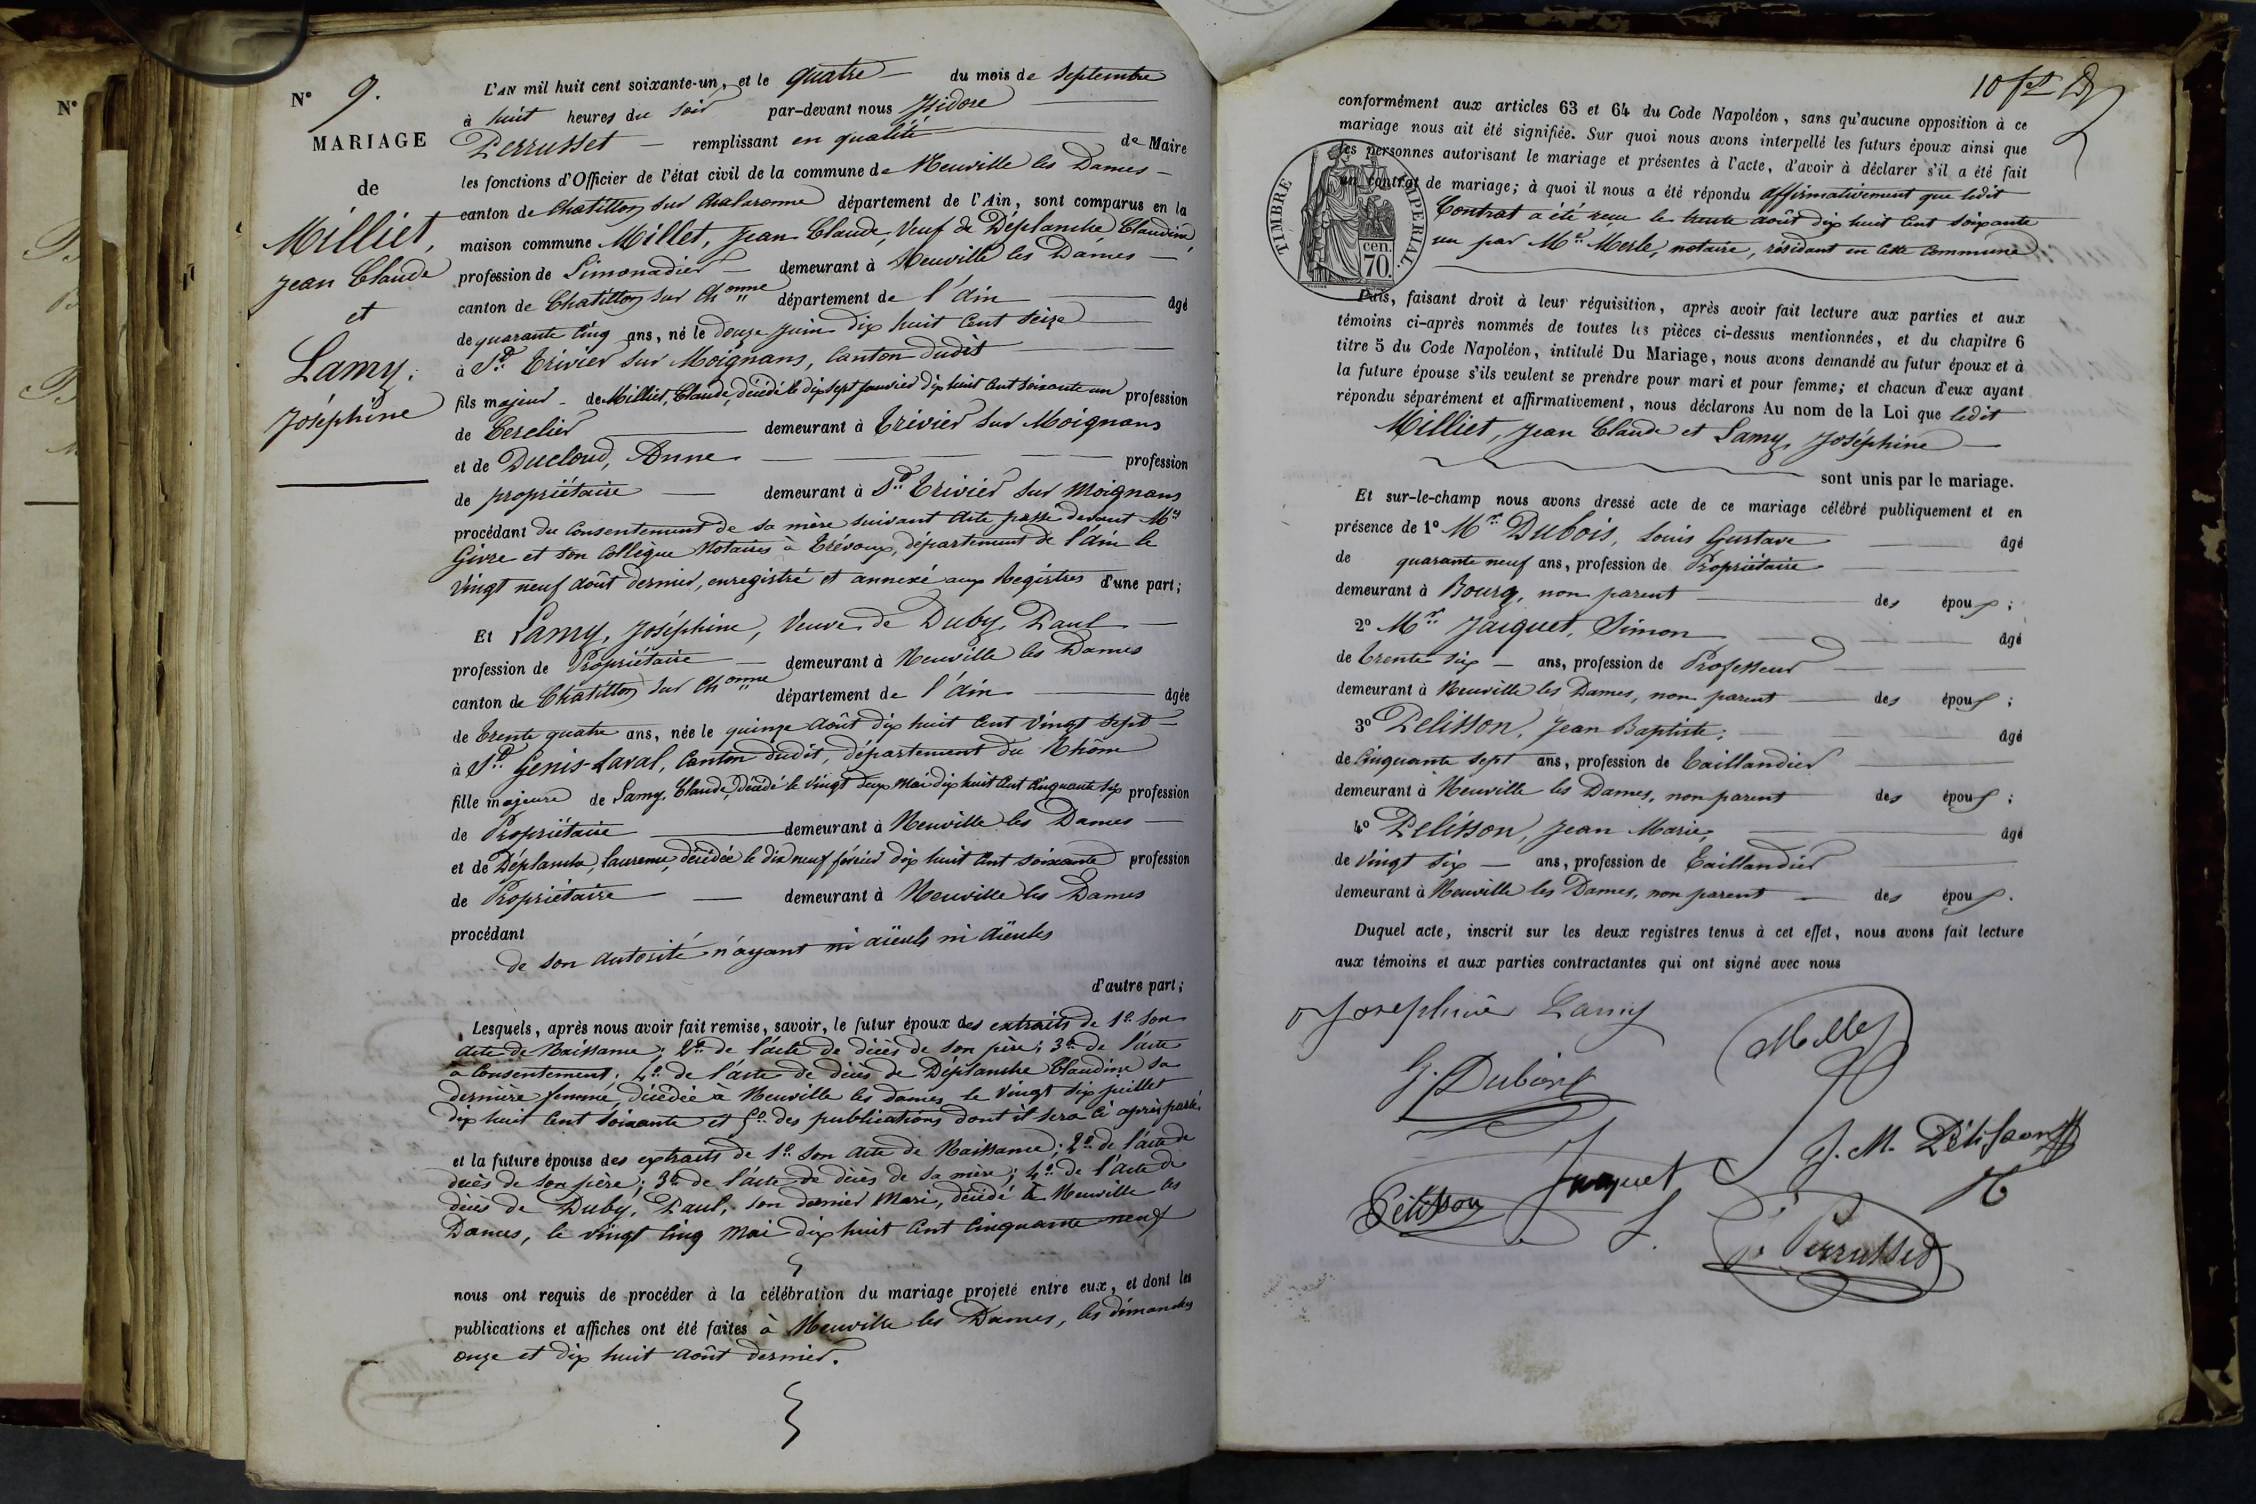 N° 9.
MARIAGE
de
Milliet,
Jean Claude
et
Lamy,
Joséphine
L'AN mil huit cent soixante-un, et le quatre du mois de Septembre
à huit heures du soir par-devant nous Isidore
Perrusset remplissant en qualité de Maire
les fonctions d'Officier de l'état civil de la commune de Neuville les Dames
canton de Chatillon sur Chalaronne département de l'Ain, sont comparus en la
maison commune Millet, Jean Claude, Veuf de Déplanche Claudine,
profession de Limonadier demeurant à Neuville les Dames
canton de Chatillon sur Ch onne département de l'Ain âgé
de quarante cinq ans, né le douze juin dix huit cent seize
à St. Trivier sur Moignans, Canton dudit
fils majeur de Milliet, Claude, décédé le dix sept janvier dix huit cent soixante un profession
de Cerclier demeurant à Trivier sur Moignans
et de Ducloud, Anne profession
de propriétaire demeurant à St. Trivier sur Moignans
procédant du consentement de sa mère suivant acte passé devant Me
Givre et son Collegue Notaires à Trévoux, département de l'ain le
Vingt neuf août dernier, enregistré et annexé aux Registres d'une part;
Et Lamy, Joséphine, Veuve de Duby, Paul
profession de Propriétaire demeurant à Neuville les Dames
canton de Chatillon sur Ch onne département de l'Ain âgée
de Trente quatre ans, née le quinze août dix huit cent vingt sept
à St. Genis-Laval, Canton dudit, département du Rhône
fille majeure de Lamy, Claude, décédé le vingt deux mai dix huit cent cinquante six profession
de Propriétaire demeurant à Neuville les Dames
et de Déplanche, Laurence, décédée le dix neuf février dix huit cent soixante profession
de Propriétaire demeurant à Neuville les Dames
procédant
de son autorité n'ayant ni aïeuls ni aïeules
d'autre part;
Lesquels, après nous avoir fait remise, savoir, le futur époux des extraits de 1° son
acte de Naissance; 2° de l'acte de décès de son père; 3° de l'acte
à Consentement; 4° de l'acte de décès de Déplanche Claudine sa
dernière femme, décédée à Neuville les dames le vingt six juillet
dix huit cent soixante et 5° des publications dont il sera ci après parlé,
et la future épouse des extraits de 1° son acte de Naissance; 2° de l'acte de
décès de son père; 3° de l'acte de décès de sa mère; 4° de l'acte de
décès de Duby, Paul, son dernier Mari, décédé à Neuville les
Dames, le vingt cinq Mai dix huit cent cinquante neuf
nous ont requis de procéder à la célébration du mariage projeté entre eux, et dont les
publications et affiches ont été faites à Neuville les Dames, les dimanches
onze et dix huit août dernier.
conformément aux articles 63 et 64 du Code Napoléon, sans qu'aucune opposition à ce
mariage nous ait été signifiée. Sur quoi nous avons interpellé les futurs époux ainsi que
les personnes autorisant le mariage et présentes à l'acte, d'avoir à déclarer s'il a été fait
un contrat de mariage; à quoi il nous a été répondu affirmativement que ledit
Contrat a été reçu le trente août dix huit cent soixante
un par Me. Merle, notaire, résidant en cette commune
TIMBRE IMPERIAL
cen.
70.
Puis, faisant droit à leur réquisition, après avoir fait lecture aux parties et aux
témoins ci-après nommés de toutes les pièces ci-dessus mentionnées, et du chapitre 6
titre 5 du Code Napoléon, intitulé Du Mariage, nous avons demandé au futur époux et à
la future épouse s'ils veulent se prendre pour mari et pour femme; et chacun d'eux ayant
répondu séparément et affirmativement, nous déclarons Au nom de la Loi que ledit
Milliet, Jean Claude et Lamy, Joséphine
sont unis par le mariage.
Et sur-le-champ nous avons dressé acte de ce mariage célébré publiquement et en
présence de 1° Mr. Dubois, Louis Gustave âgé
de quarante neuf ans, profession de Propriétaire
demeurant à Bourg, non parent des époux;
2° Mr. Jaiquet, Simon âgé
de trente six ans, profession de Professeur
demeurant à Neuville les Dames, non parent des époux;
3° Pelisson, Jean Baptiste, âgé
de cinquante sept ans, profession de Taillandier
demeurant à Neuville les Dames, non parent des époux;
4° Pelisson, Jean Marie, âgé
de vingt six ans, profession de Taillandier
demeurant à Neuville les Dames, non parent des époux.
Duquel acte, inscrit sur les deux registres tenus à cet effet, nous avons fait lecture
aux témoins et aux parties contractantes qui ont signé avec nous
Josephine Lamy
Millet
G. Dubois
J. M. Pélisson
Pélisson Jaquet
Perrusset